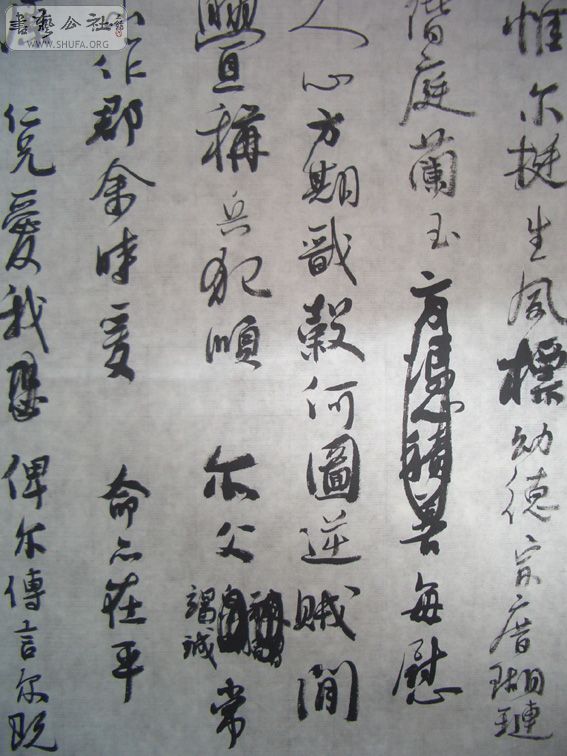 書藝公社
WWW.SHUFA.ORG
惟尔挺生夙標幼德宗廟瑚璉
階庭蘭玉方憑積善每慰
人心方期戩榖何圖逆賊間
釁稱兵犯順尔父竭誠常
作郡余時受命亦在平
仁兄愛我俾尔傳言尔既